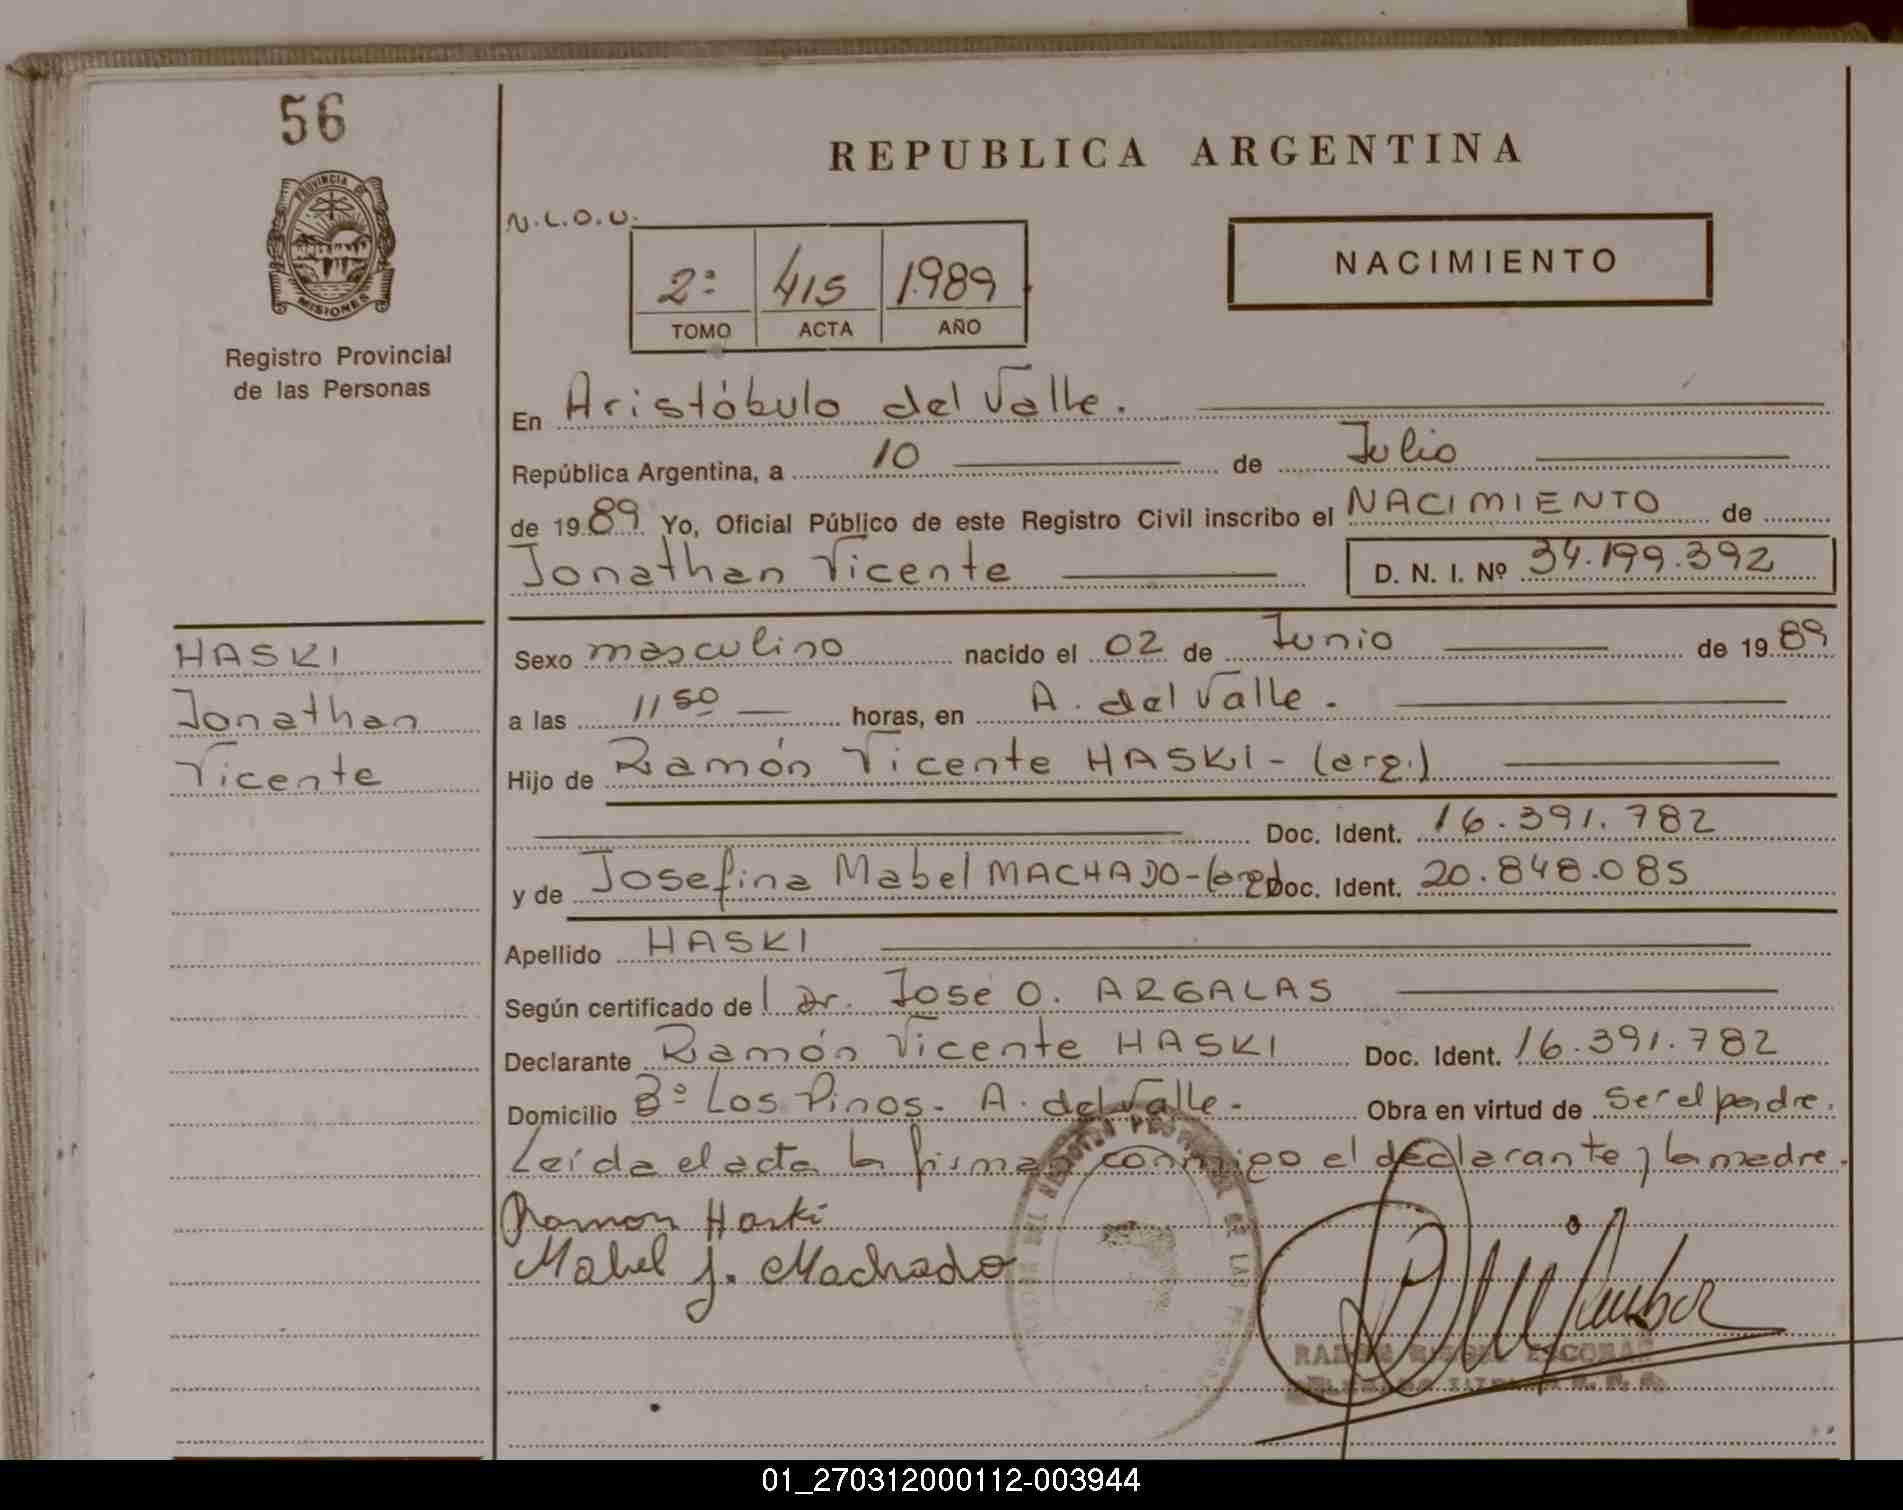 56
REPUBLICA ARGENTINA
PROVINCIA DE
MISIONES
Registro Provincial
de las Personas
N.L.O.U.
2º 415 1989
TOMO ACTA AÑO
NACIMIENTO
En Aristóbulo del Valle.
República Argentina, a 10 de Julio
de 1989 Yo, Oficial Público de este Registro Civil inscribo el NACIMIENTO de
Jonathan Vicente D. N. I. Nº 34.199.392
HASKI
Jonathan
Vicente
Sexo masculino nacido el 02 de Junio de 1989
a las 11 50 horas, en A. del Valle.
Hijo de Ramón Vicente HASKI - (arg.)
Doc. Ident. 16.391.782
y de Josefina Mabel MACHADO - (arg) Doc. Ident. 20.848.085
Apellido HASKI
Según certificado del Dr. José O. ARGALAS
Declarante Ramón Vicente HASKI Doc. Ident. 16.391.782
Domicilio Bº Los Pinos - A. del Valle - Obra en virtud de ser el padre.
Leída el acta la firman conmigo el declarante y la madre.
Ramon Haski
Mabel J. Machado
ESCOBAR
01_270312000112-003944